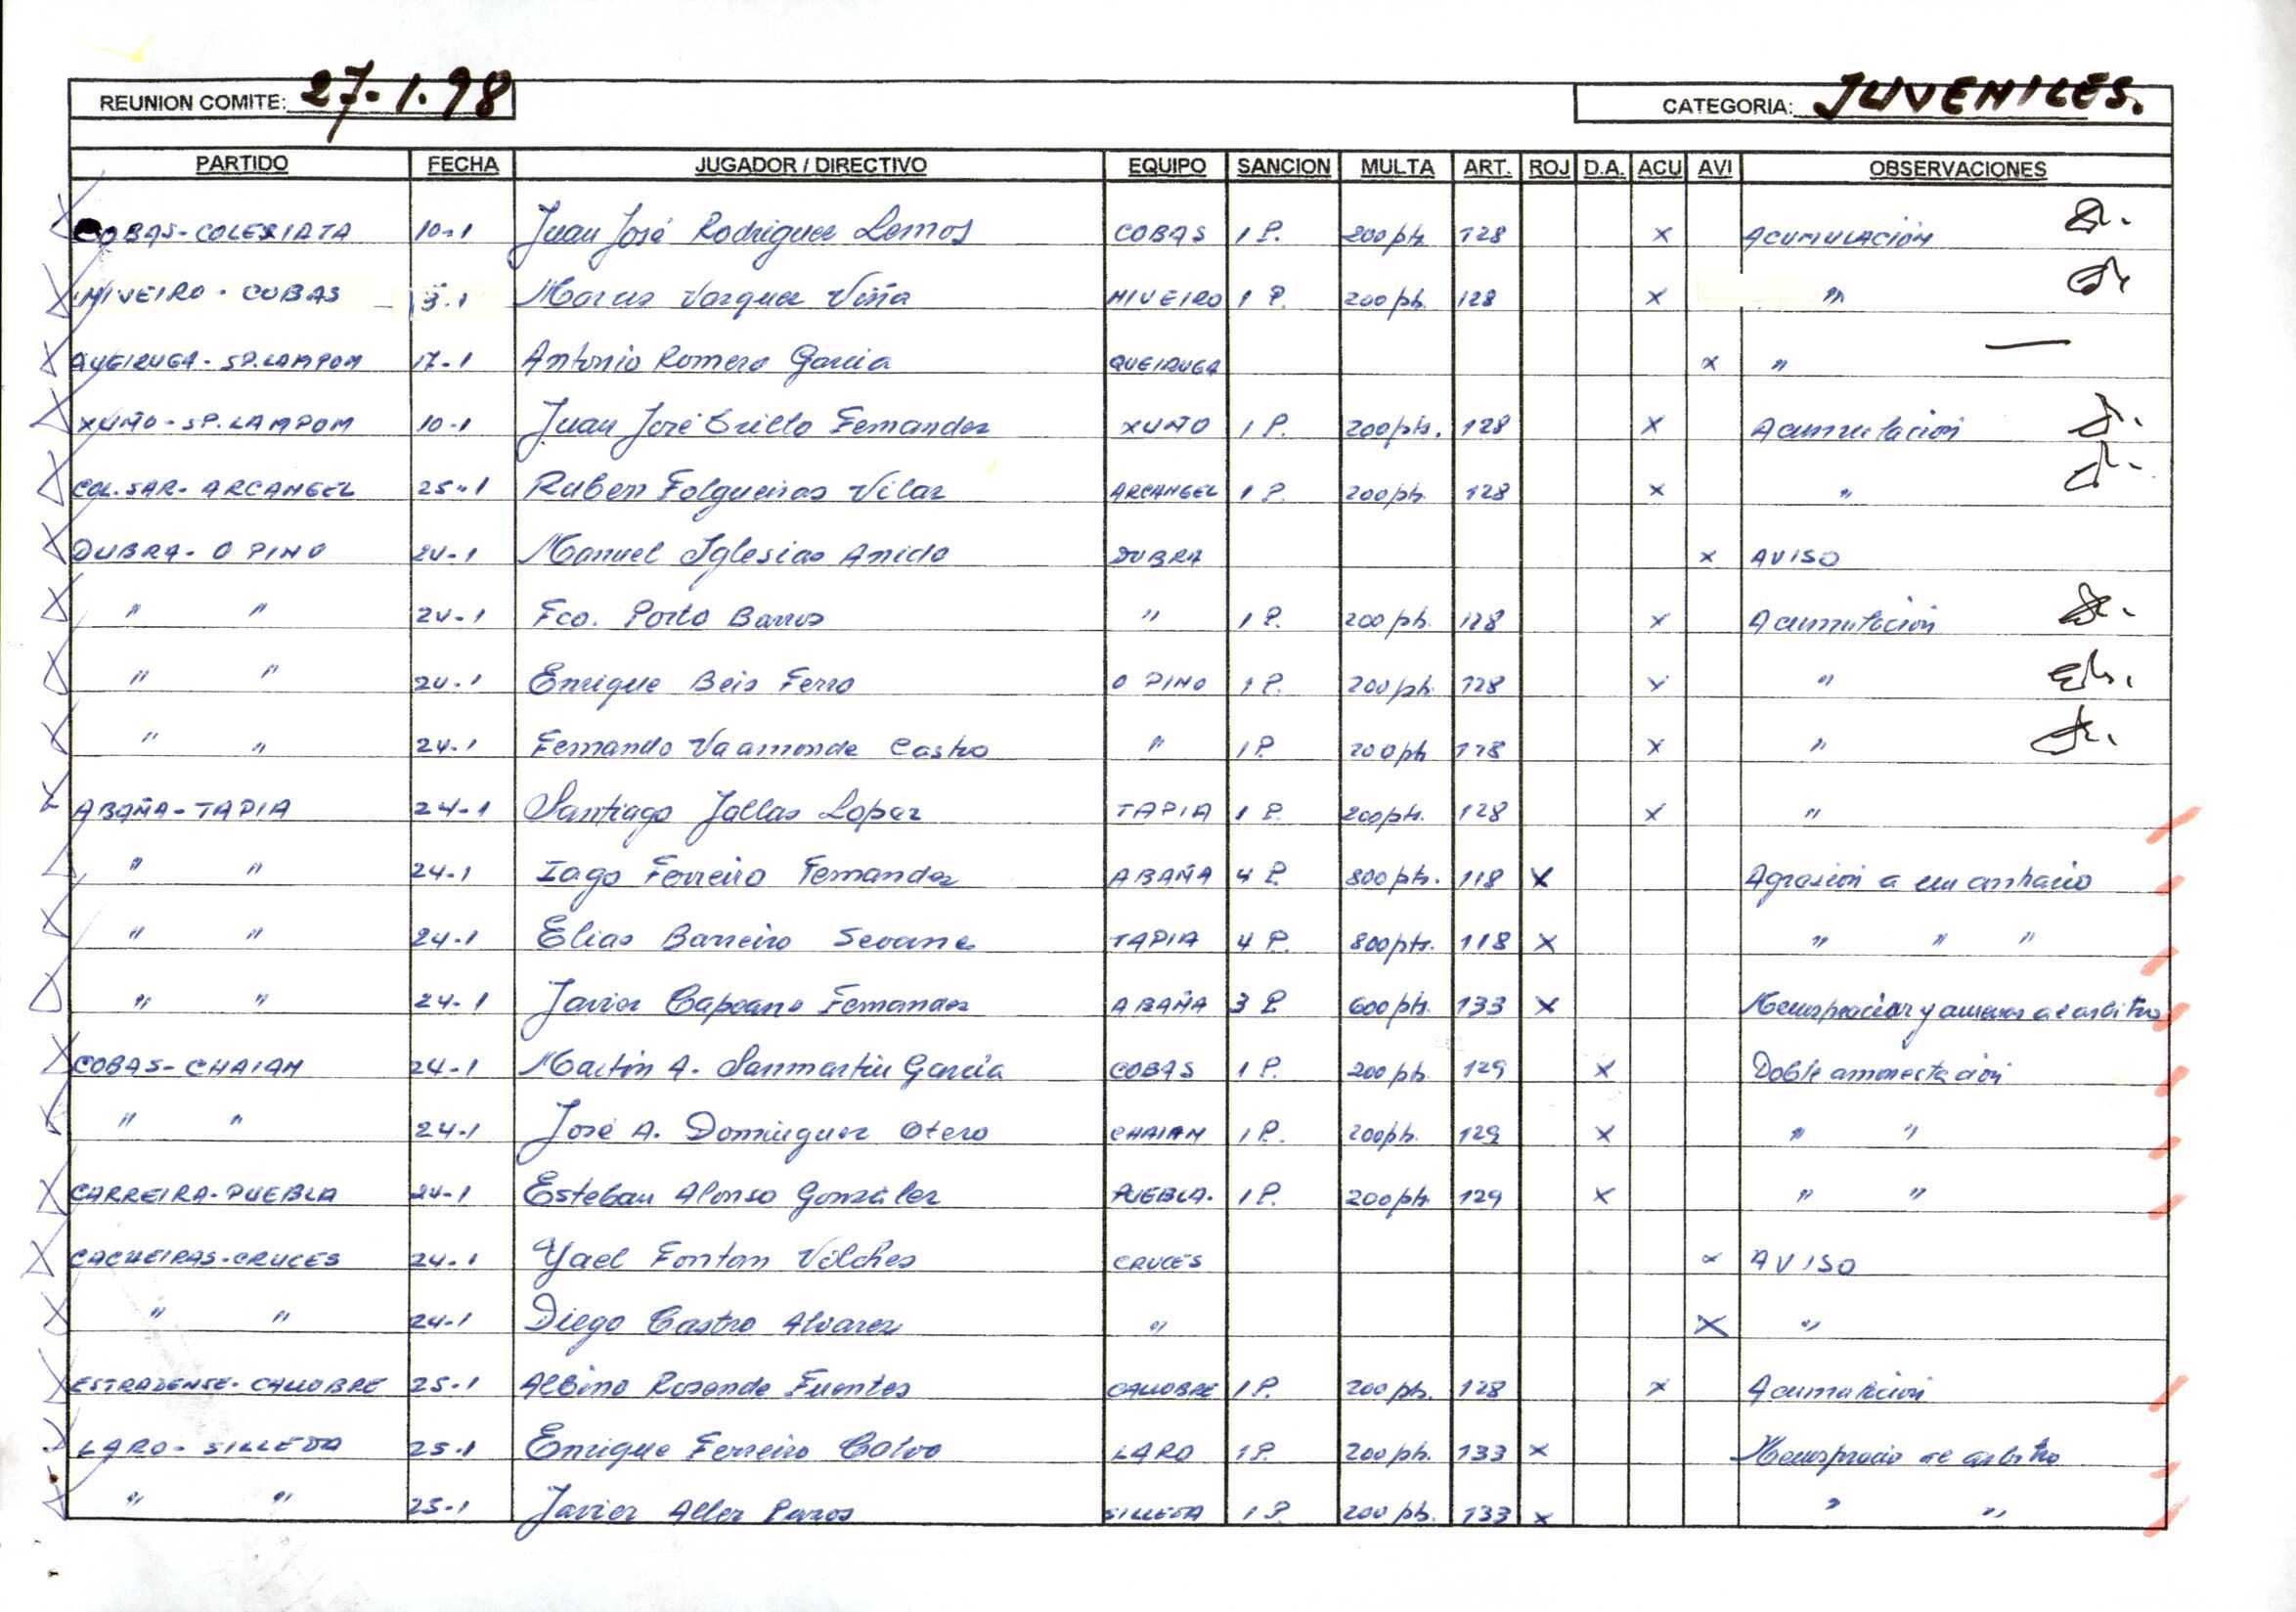 REUNION COMITE: 27-1-98 CATEGORIA: JUVENILES.
PARTIDO FECHA JUGADOR / DIRECTIVO EQUIPO SANCION MULTA ART. ROJ D.A. ACU AVI OBSERVACIONES
COBAS-COLEXIATA 10-1 Juan José Rodriguez Lemos COBAS 1 P. 200 pts. 128 x ACUMULACIÓN
NIVEIRO - COBAS 3-1 Marcos Vazquez Viña NIVEIRO 1 P. 200 pts. 128 x "
QUEIRUGA - SP. LAMPON 17-1 Antonio Romero Garcia QUEIRUGA x "
XUÑO - SP. LAMPON 10-1 Juan José Brillo Fernandez XUÑO 1 P. 200 pts. 128 x Acumulación
COL. SAR - ARCANGEL 25-1 Ruben Folgueiras Vilar ARCANGEL 1 P. 200 pts. 128 x "
DUBRA - O PINO 24-1 Manuel Iglesias Anido DUBRA x AVISO
" " 24-1 Fco. Porto Barros " 1 P. 200 pts. 128 x Acumulación
" " 24-1 Enrique Beis Ferro O PINO 1 P. 200 pts. 128 x "
" " 24-1 Fernando Vaamonde Castro " 1 P. 200 pts 128 x "
A BAÑA - TAPIA 24-1 Santiago Jallas Lopez TAPIA 1 P. 200 pts. 128 x "
" " 24-1 Iago Ferreiro Fernandez A BAÑA 4 P. 800 pts. 118 x Agresion a un contrario
" " 24-1 Elias Barreiro Seoane TAPIA 4 P. 800 pts. 118 x " " "
" " 24-1 Javier Capeans Fernandez A BAÑA 3 P. 600 pts. 133 x Menospreciar y amenaz al arbitro
COBAS - CHAIAN 24-1 Martin A. Sanmartin García COBAS 1 P. 200 pts. 129 x Doble amonestación
" " 24-1 José A. Dominguez Otero CHAIAN 1 P. 200 pts. 129 x " "
CARREIRA - PUEBLA 24-1 Esteban Alonso González PUEBLA. 1 P. 200 pts. 129 x " "
CACHEIRAS - CRUCES 24-1 Yael Fontan Vilches CRUCES x AVISO
" " 24-1 Diego Castro Alvarez " x "
ESTRADENSE - CALLOBRE 25-1 Albino Rosende Fuentes CALLOBRE 1 P. 200 pts. 128 x Acumulación
LARO - SILLEDA 25-1 Enrique Ferreiro Calvo LARO 1 P. 200 pts. 133 x Menosprecio al arbitro
" " 25-1 Javier Aller Pazos SILLEDA 1 P. 200 pts. 133 x " "